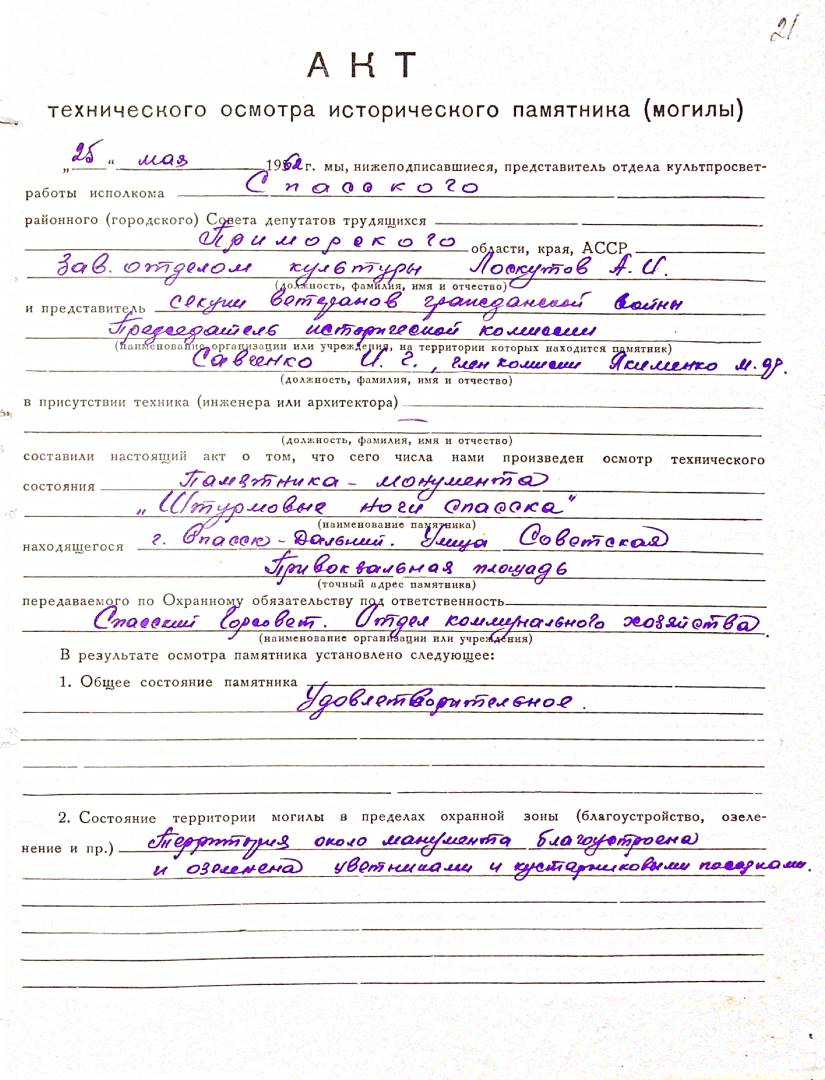 21
АКТ
технического осмотра исторического памятника (могилы)
„25“ мая 1962 г. мы, нижеподписавшиеся, представитель отдела культпросвет-
работы исполкома Спасского
районного (городского) Совета депутатов трудящихся
Приморского области, края, АССР
Зав. отделом культуры Лоскутов А. И.
(должность, фамилия, имя и отчество)
и представитель секции ветеранов гражданской войны
Председатель исторической комиссии
(наименование организации или учреждения, на территории которых находится памятник)
Савченко И. Г., член комисии Якименко М. Ф.
(должность, фамилия, имя и отчество)
в присутствии техника (инженера или архитектора)
—
(должность, фамилия, имя и отчество)
составили настоящий акт о том, что сего числа нами произведен осмотр технического
состояния Памятника - монумента
„Штурмовые ночи Спасска"
(наименование памятника)
находящегося г. Спасск-Дальний. Улица Советская
Привокзальная площадь
(точный адрес памятника)
передаваемого по Охранному обязательству под ответственность
Спасский Горсовет. Отдел коммунального хозяйства.
(наименование организации или учреждения)
В результате осмотра памятника установлено следующее:
1. Общее состояние памятника
Удовлетворительное.
2. Состояние территории могилы в пределах охранной зоны (благоустройство, озеле-
нение и пр.) Территория около манумента благоустроена
и озеленена цветниками и кустарниковыми посадками.